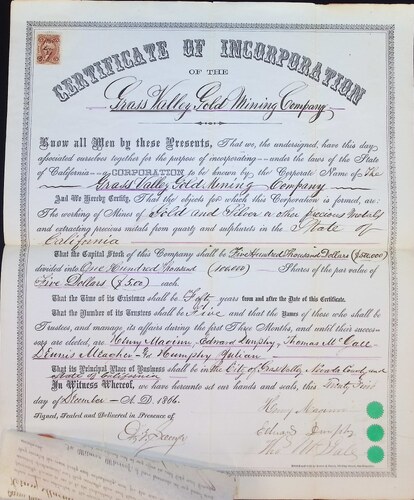 CERTIFICATE OF INCORPORATION
OF THE
Grass Valley Gold Mining Company
Know all Men by these Presents, That we, the undersigned, have this day
associated ourselves together for the purpose of incorporating under the laws of the State
of California a CORPORATION to be known by the Corporate Name of The
Grass Valley Gold Mining Company
And We Hereby Certify, That the objects for which this Corporation is formed, are:
The working of Mines of Gold and Silver or other precious Metals
and extracting precious metals from quartz and sulphurets in the State of
California
That the Capital Stock of this Company shall be Five Hundred Thousand Dollars ($500,000)
divided into One Hundred Thousand (100,000) Shares of the par value of
Five Dollars ($5.00) each.
That the Time of its Existence shall be Fifty years from and after the Date of this Certificate.
That the Number of its Trustees shall be Five and that the Names of those who shall be
Trustees, and manage its affairs during the first Three Months, and until their successors
are elected, are Henry Maginn, Edward Dunphy, Thomas McCall
Dennis Meagher & Humphry Julian
That its Principal Place of Business shall be in the City of Grass Valley, Nevada County and
State of California
In Witness Whereof, we have hereunto set our hands and seals, this Twenty First
day of December A. D. 1866.
Signed, Sealed and Delivered in Presence of
Henry Maginn
Edward Dunphy